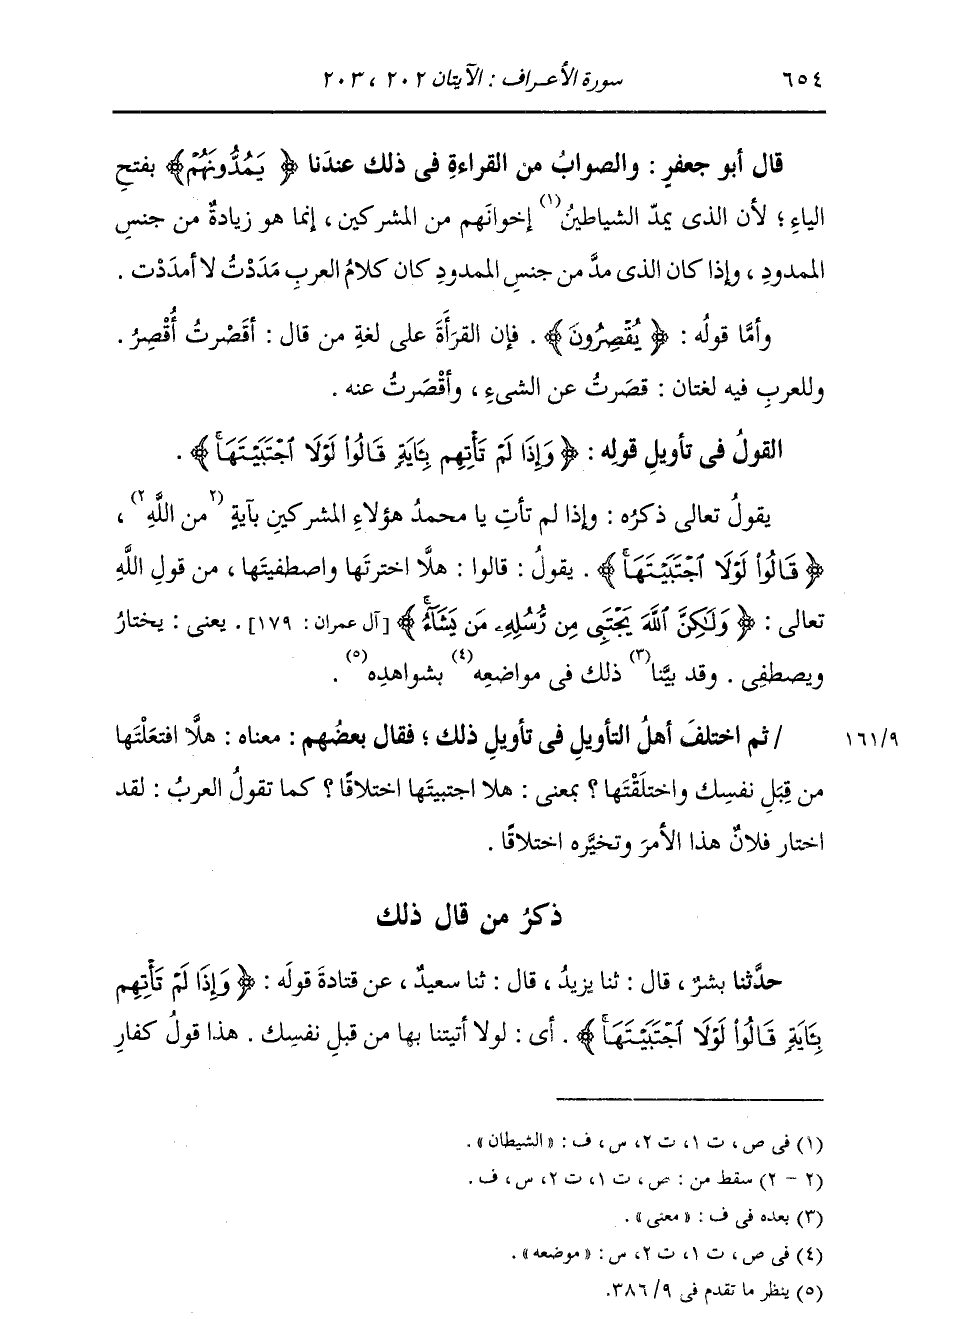 ٦٥٤ سورة الأعراف : الآيتان ٢٠٢ ، ٢٠٣
قال أبو جعفرٍ : والصوابُ من القراءةِ فى ذلك عندَنا ﴿ يَمُدُّونَهُمْ ﴾ بفتحِ
الياءِ ؛ لأن الذى يمدّ الشياطينُ(١) إخوانَهم من المشركين ، إنما هو زيادةٌ من جنسِ
الممدودِ ، وإذا كان الذى مدَّ من جنسِ الممدودِ كان كلامُ العربِ مَدَدْتُ لا أمدَدْت .
وأمَّا قولُه : ﴿ يُقْصِرُونَ ﴾ . فإن القرَأَةَ على لغةِ من قال : أقصَرْتُ أُقْصِرُ .
وللعربِ فيه لغتان : قصَرتُ عن الشىءِ ، وأقْصَرتُ عنه .
القولُ فى تأويلِ قولِه : ﴿ وَإِذَا لَمْ تَأْتِهِم بِئَايَةٍ قَالُوا۟ لَوْلَا ٱجْتَبَيْتَهَا ۚ ﴾ .
يقولُ تعالى ذكرُه : وإذا لم تأتِ يا محمدُ هؤلاءِ المشركين بآيةٍ (٢من اللَّهِ٢) ،
﴿ قَالُوا۟ لَوْلَا ٱجْتَبَيْتَهَا ۚ ﴾ . يقولُ : قالوا : هلَّا اخترتَها واصطفيتَها ، من قولِ اللَّهِ
تعالى : ﴿ وَلَٰكِنَّ ٱللَّهَ يَجْتَبِى مِن رُّسُلِهِۦ مَن يَشَآءُ ۖ ﴾ [آل عمران : ١٧٩] . يعنى : يختارُ
ويصطفِى . وقد بيَّنا(٣) ذلك فى مواضعِه(٤) بشواهدِه(٥) .
١٦١/٩ / ثم اختلفَ أهلُ التأويلِ فى تأويلِ ذلك ؛ فقال بعضُهم : معناه : هلَّا افتعَلْتَها
من قِبَلِ نفسِك واختلَقْتَها ؟ بمعنى : هلا اجتبيتَها اختلاقًا ؟ كما تقولُ العربُ : لقد
اختار فلانٌ هذا الأمرَ وتخيَّره اختلاقًا .
ذكرُ من قال ذلك
حدَّثنا بشرٌ ، قال : ثنا يزيدُ ، قال : ثنا سعيدٌ ، عن قتادةَ قولَه : ﴿ وَإِذَا لَمْ تَأْتِهِم
بِئَايَةٍ قَالُوا۟ لَوْلَا ٱجْتَبَيْتَهَا ۚ ﴾ . أى : لولا أتيتنا بها من قبلِ نفسِك . هذا قولُ كفارِ
(١) فى ص ، ت ١، ت ٢، س ، ف : « الشيطان » .
(٢ - ٢) سقط من : ص ، ت ١، ت ٢، س ، ف .
(٣) بعده فى ف : « معنى » .
(٤) فى ص ، ت ١، ت ٢، س : « موضعه » .
(٥) ينظر ما تقدم فى ٩/ ٣٨٦.